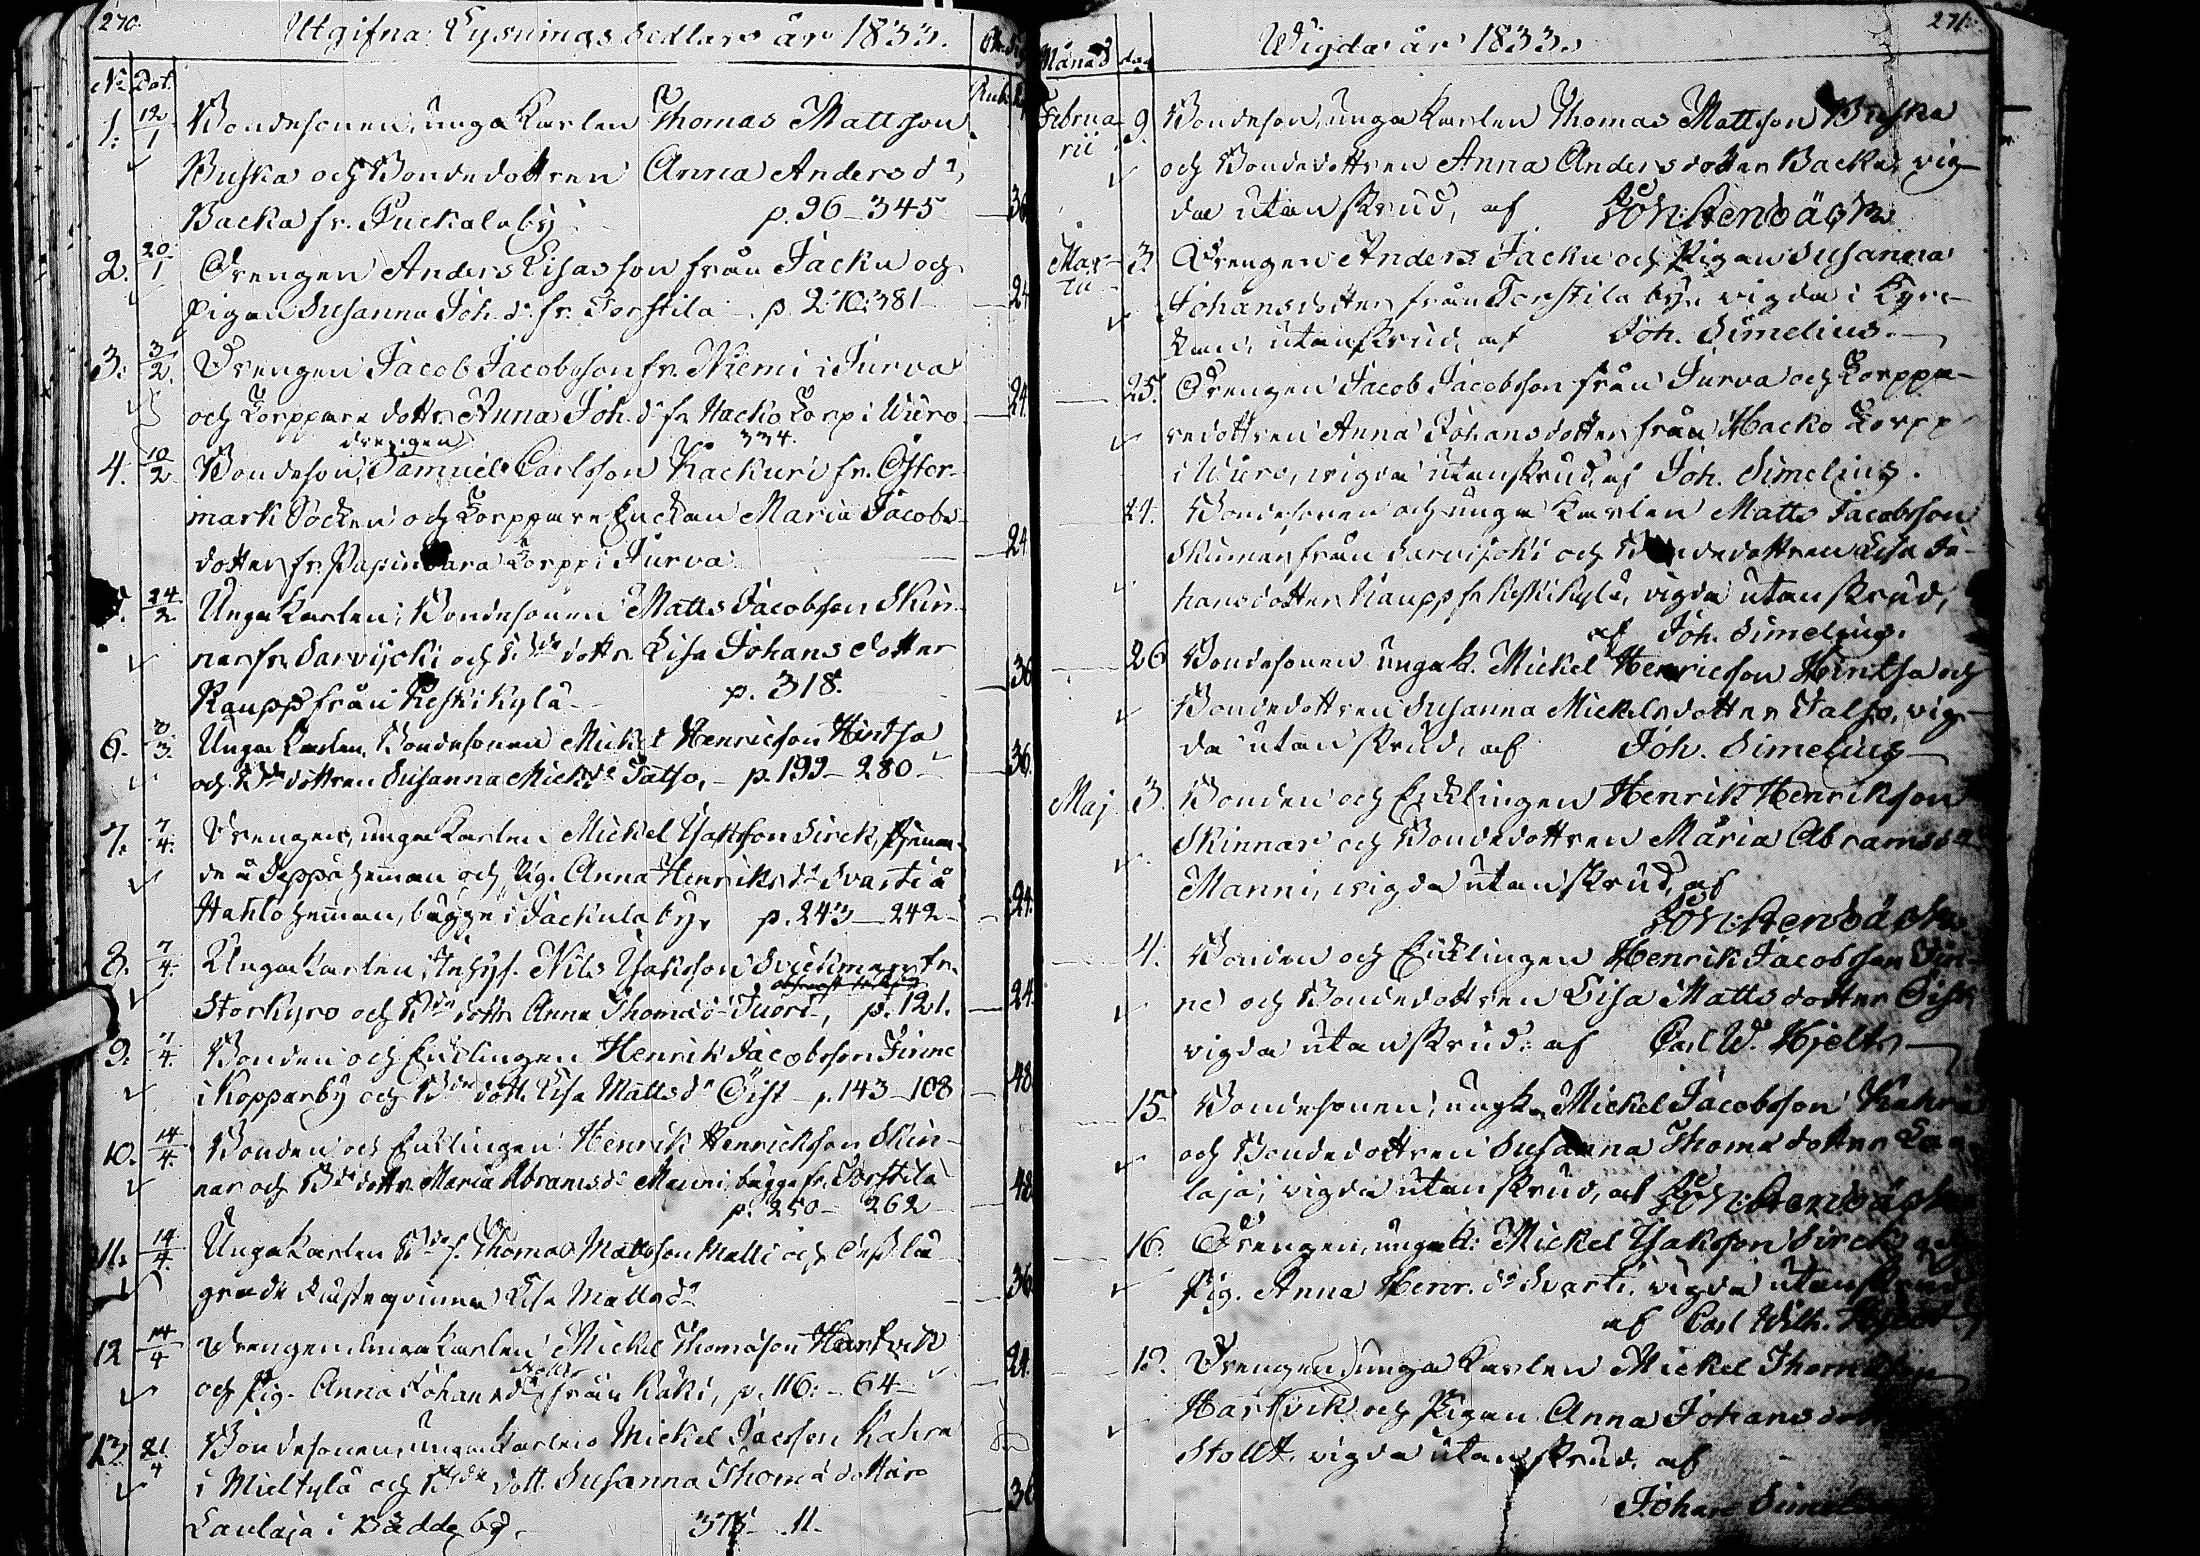 270.
Utgifna Lysningssedlar år 1833.
No Dat.
Rub.
1. 12/1 Bondesonen, unga Karlen Thomas Mattsson
Buska och Bondedottren Anna Andersdr
Backa fr. Puckala by p. 96 - 345 36
2. 20/1 Drengen Anders Eisasson från Jacku och
Pigan Susanna Joh.dr fr. Torstila - p. 381 24
3. 3/2 Drengen Jacob Jacobsson fr. Niemi i Jurva
och Torppare dottr. Anna Joh.dr fr. Hacko Torp i Wuro 24.
drengen 334.
4. 10/2 Bondeson, Samuel Carlsson Kackuri fr. Öster-
mark Socken och Torppare Enckan Maria Jacobs-
dotter fr. Torpp i Jurva 24
24/2 Unga Karlen, Bondesonen Matts Jacobsson Skin-
nar fr. Sarvijoki och Bde dottr. Lisa Johansdotter
Kaupp från Keskikylä p. 318. 36
6. 3/3. Unga Karlen, Bondesonen Mickel Henricsson Hintsa
och Bde dottren Susanna Mickdr Talso, - p. 199 - 280 - 36.
7. 7/4. Drengen, unga Karlen Mickel Isaksson Sirck, tjenan-
de å Seppä heman och Pig. Anna Henriksdr Svarti å
Hahto heman, bägge i Jackula by. p. 243 - 242 - 24.
8. 7/4. Unga Karlen, Inhys. Nils Isaksson fr.
Storkyro och Bde dottr. Anna Thomasdr Tuori -, p. 121. 24.
9. 7/4. Bonden och Encklingen Henrik Jacobsson Finne
i Kopparby och Bde dott. Lisa Mattsdr Öist - p. 143 - 108 48
10. 14/4. Bonden och Encklingen Henrik Henricksson Skin-
nar och Bde dottr. Maria Abramsdr Manni, bägge fr. Torstila
p. 250 - 262 - 48
11. 14/4. Unga Karlen Bde s. Thomas Mattsson Malli och
Lisa Mattsdr 36
12 14/4 Drengen, unga Karlen Mickel Thomasson Hartvik
och Pig. Anna Johansdr från Kåki, p. 116. - 64 - 24.
13. 21/4 Bondesonen, unga Karlen Mickel Jacsson Kahra
i Mieltylä och Bde dott. Susanna Thomædotter
Laulaja i Rådde by. 375 - 11. 36
271.
Månad dag
Wigda år 1833.
Februa-
rii 9. Bondeson, unga Karlen Thomas Mattsson Buska
och Bondedottren Anna Andersdotter Backa, vig-
da utan skrud, af Joh. Stenbäck.
Mar-
tii 3. Drengen Anders Jacku och Pigan Susanna
Johansdotter från Torstila by, vigda i Kyrc-
kan, utan skrud, af Joh. Simelius.
25. Drengen Jacob Jacobsson från Jurva och Torppa-
redottren Anna Johansdotter från Hacko Torpp
i Wuro, vigda utan skrud, af Joh. Simelius.
24. Bondesonen och unga Karlen Matts Jacobsson
Skinnar från Sarvijoki och Bondedottren Lisa Jo-
hansdotter Kaupp fr. Keskikylä, vigda utan skrud,
af Joh. Simelius.
26 Bondesonen unga k. Mickel Henricsson Hintsa och
Bondedottren Susanna Mickelsdotter Talso, vig-
da utan skrud, af Joh. Simelius
Maj 3. Bonden och Encklingen Henrik Henriksson
Skinnar och Bondedottren Maria Abramsdr
Manni, vigda utan skrud, af
Joh. Stenbäck.
4. Bonden och Encklingen Henrik Jacobsson Fin-
ne och Bondedottren Lisa Mattsdotter Öist,
vigda utan skrud. af Carl W. Hjelt.
15. Bondesonen, ungk. Mickel Jacobsson Kahra
och Bondedottren Susanna Thomædotter Lau-
laja, vigda utan skrud, af Joh. Stenbäck
16. Drengen, unga k. Mickel Isaksson Sirck och
Pig. Anna Henr.dr Svarti, vigda utan skrud
af Carl Wilh. Hjelt.
Drengen unga Karlen Mickel Thomasson
Hartvik och Pigan Anna Johansdotter
Stollt, vigda utan skrud. af
Johan Simelius